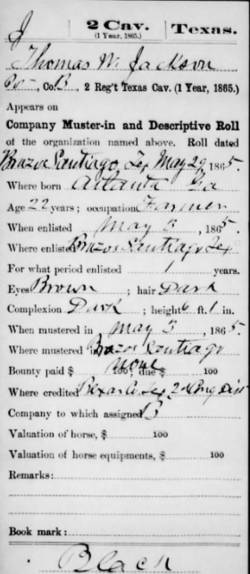 J 2 Cav. Texas.
(1 Year, 1865.)
Thomas W. Jackson
, Co. B, 2 Reg't Texas Cav. (1 Year, 1865.)
Appears on
Company Muster-in and Descriptive Roll
of the organization named above. Roll dated
Brazos Santiago, Tex May 29, 1865.
Where born Atlanta Ga
Age 22 years; occupation Farmer
When enlisted May 5, 1865.
Where enlisted Brazos Santiago Tex
For what period enlisted 1 years.
Eyes Brown; hair Dark
Complexion Dark; height 6 ft. 1 in.
When mustered in May 5, 1865.
Where mustered Brazos Santiago
Bounty paid $ 100; due $ 100
Where credited Bexar Co Tex 2
Company to which assigned B
Valuation of horse, $ 100
Valuation of horse equipments, $ 100
Remarks:
Book mark:
Black